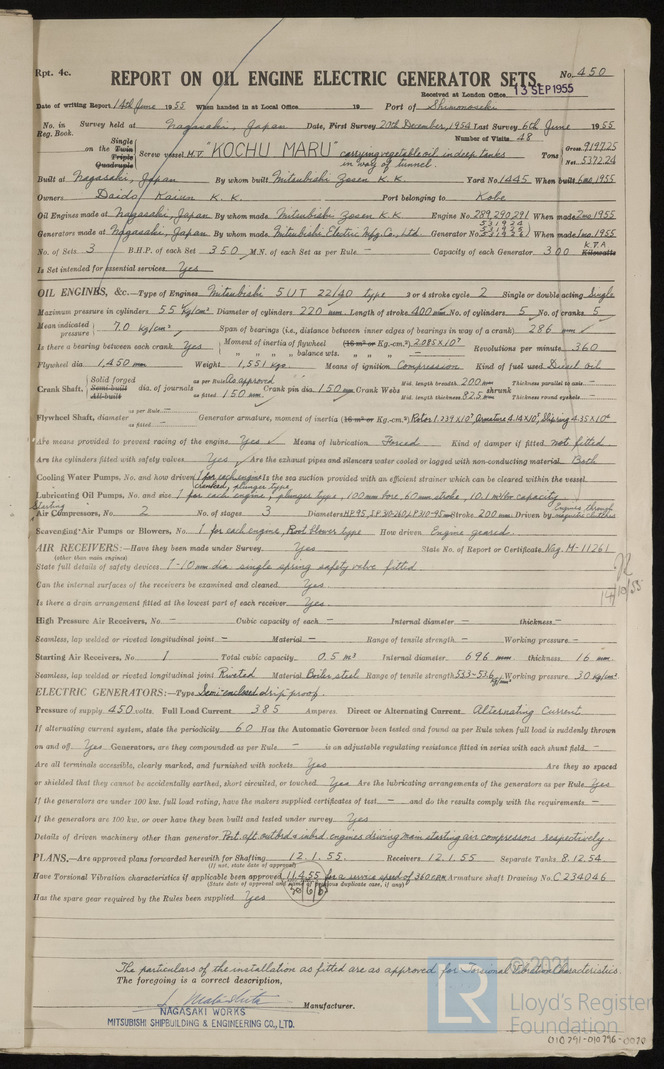 Rpt. 4c.
REPORT ON OIL ENGINE ELECTRIC GENERATOR SETS. No. 450
Received at London Office 13 SEP 1955
Date of writing Report 14th June 1955 When handed in at Local Office 19 Port of Shimonoseki
No. in Reg. Book. Survey held at Nagasaki, Japan Date, First Survey 20th December, 1954 Last Survey 6th June 1955
Number of Visits 48
on the Single Twin Triple Quadruple Screw vessel M.V. "KOCHU MARU" carrying vegetable oil in deep tanks in way of tunnel. Tons Gross 9197.25 Net 5372.24
Built at Nagasaki, Japan By whom built Mitsubishi Zosen K.K. Yard No. 1445 When built 6mo. 1955
Owners Daido Kaiun K.K. Port belonging to Kobe
Oil Engines made at Nagasaki, Japan By whom made Mitsubishi Zosen K.K. Engine No. 289, 290, 291 When made 2mo. 1955
Generators made at Nagasaki, Japan By whom made Mitsubishi Electric Mfg. Co., Ltd. Generator No. When made 1mo. 1955
No. of Sets 3 B.H.P. of each Set 350 M.N. of each Set as per Rule – Capacity of each Generator 300 K.V.A. Kilowatts
Is Set intended for essential services Yes
OIL ENGINES, &c.—Type of Engines Mitsubishi 5UT 22/40 type 2 or 4 stroke cycle 2 Single or double acting Single
Maximum pressure in cylinders 55 kg/cm² Diameter of cylinders 220 mm. Length of stroke 400 mm No. of cylinders 5 No. of cranks 5
Mean indicated pressure 7.0 kg/cm² Span of bearings (i.e., distance between inner edges of bearings in way of a crank) 286 mm
Is there a bearing between each crank Yes Moment of inertia of flywheel (16 m² or Kg.-cm.²) 2.085×10⁷ Revolutions per minute 360
" " " balance wts. " " –
Flywheel dia. 1,450 mm Weight 1,551 kgs. Means of ignition Compression Kind of fuel used Diesel oil
Crank Shaft, Solid forged Semi-built All-built dia. of journals as per Rule As approved as fitted 150 mm Crank pin dia. 150 mm Crank Webs Mid. length breadth 200 mm Mid. length thickness 82.5 mm shrunk Thickness parallel to axis – Thickness round eyehole –
Flywheel Shaft, diameter as per Rule – as fitted – Generator armature, moment of inertia (16 m² or Kg.-cm.²) Rotor 1.239×10⁷, Armature 4.14×10⁵, Slipring 4.35×10⁴
Are means provided to prevent racing of the engine Yes Means of lubrication Forced Kind of damper if fitted not fitted
Are the cylinders fitted with safety valves Yes Are the exhaust pipes and silencers water cooled or lagged with non-conducting material Both
Cooling Water Pumps, No. and how driven 1 for each engine Is the sea suction provided with an efficient strainer which can be cleared within the vessel
Cranked, plunger type
Lubricating Oil Pumps, No. and size 1 for each engine, plunger type, 100 mm bore, 60 mm stroke, 10.1 m³/hr capacity
Starting Air Compressors, No. 2 No. of stages 3 Diameters Stroke 200 mm Driven by Engines through magnetic clutches
Scavenging Air Pumps or Blowers, No. 1 for each engine, Root blower type How driven Engine geared
AIR RECEIVERS:—Have they been made under Survey Yes State No. of Report or Certificate Nag. M-11261
(other than main engines)
State full details of safety devices 1-10 mm dia single spring safety valve fitted
Can the internal surfaces of the receivers be examined and cleaned Yes.
Is there a drain arrangement fitted at the lowest part of each receiver Yes.
14/10/55
High Pressure Air Receivers, No. – Cubic capacity of each – Internal diameter – thickness –
Seamless, lap welded or riveted longitudinal joint – Material – Range of tensile strength – Working pressure –
Starting Air Receivers, No. 1 Total cubic capacity 0.5 m³ Internal diameter 696 mm thickness 16 mm.
Seamless, lap welded or riveted longitudinal joint Riveted Material Boiler steel Range of tensile strength 53.3-53.6 kg/mm² Working pressure 30 kg/cm²
ELECTRIC GENERATORS:—Type Semi-enclosed drip proof.
Pressure of supply 450 volts. Full Load Current 385 Amperes. Direct or Alternating Current Alternating Current
If alternating current system, state the periodicity 60 Has the Automatic Governor been tested and found as per Rule when full load is suddenly thrown
on and off Yes Generators, are they compounded as per Rule – is an adjustable regulating resistance fitted in series with each shunt field –
Are all terminals accessible, clearly marked, and furnished with sockets Yes Are they so spaced
or shielded that they cannot be accidentally earthed, short circuited, or touched Yes Are the lubricating arrangements of the generators as per Rule Yes
If the generators are under 100 kw. full load rating, have the makers supplied certificates of test – and do the results comply with the requirements –
If the generators are 100 kw. or over have they been built and tested under survey Yes
Details of driven machinery other than generator Port aft outbrd & inbrd engines driving main starting air compressors respectively.
PLANS.—Are approved plans forwarded herewith for Shafting 12.1.55. Receivers 12.1.55 Separate Tanks 8.12.54
(If not, state date of approval)
Have Torsional Vibration characteristics if applicable been approved 11.4.55 for a service speed of 360 RPM Armature shaft Drawing No. C 234046
(State date of approval and name of previous duplicate case, if any)
Has the spare gear required by the Rules been supplied Yes
The particulars of the installation as fitted are as approved for Torsional Vibration Characteristics.
The foregoing is a correct description,
Manufacturer.
NAGASAKI WORKS
MITSUBISHI SHIPBUILDING & ENGINEERING CO., LTD.
© 2021
LR
Lloyd's Register
Foundation
010791-010796-0070